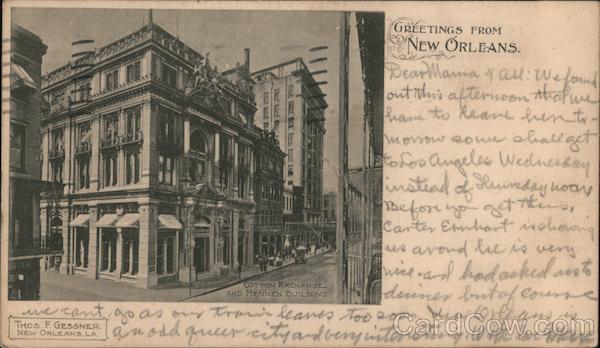 GREETINGS FROM
NEW ORLEANS.
Dear Mama & All: We found
out this afternoon that we
have to leave here to-
morrow so we shall get
to Los Angeles Wednesday
instead of Thursday now
Before you get this.
Carter Ernhart is showing
us around he is very
nice and had asked us to
dinner but of course
we can't go as our train leaves too soon. New Orleans is
an odd queer city and very interesting
COTTON EXCHANGE
AND MENNEN BUILDING
THOS. F. GESSNER
NEW ORLEANS, LA.
CardCow.com